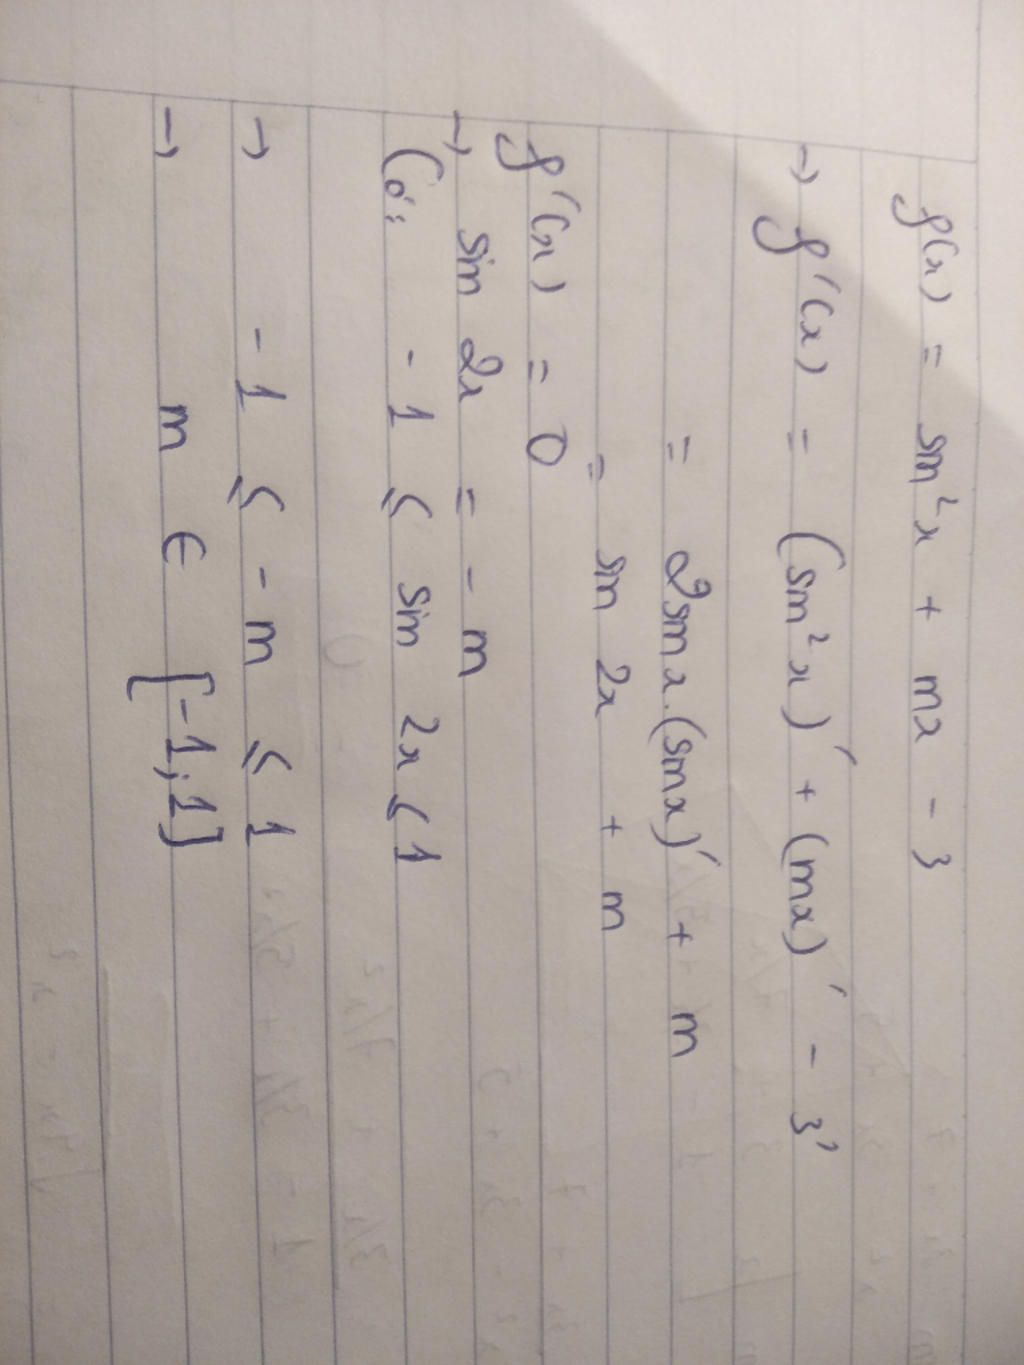 f(x) = sin²x + mx - 3
→ f'(x) = (sin²x)' + (mx)' - 3'
= 2sinx.(sinx)' + m
= sin 2x + m
f'(x) = 0
→ sin 2x = - m
Có: - 1 ≤ sin 2x ≤ 1
→ - 1 ≤ - m ≤ 1
→ m ∈ [-1; 1]